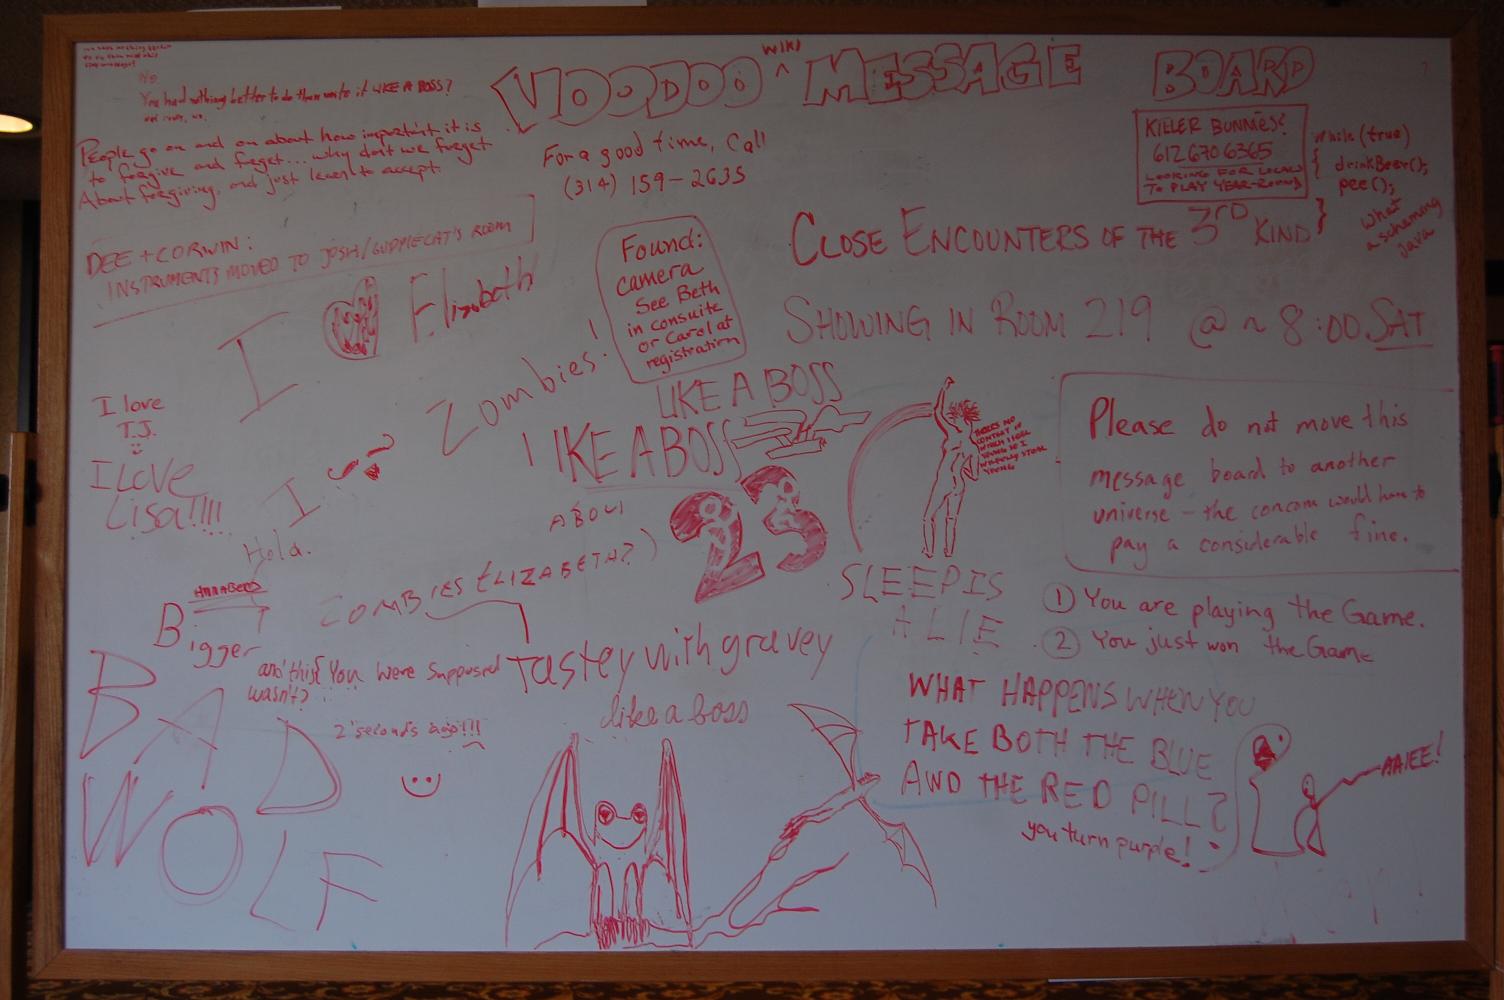 VOODOO WIKI ^ MESSAGE BOARD
No
You had nothing better to do than write it LIKE A BOSS?
People go on and on about how important it is
to forgive and forget... why don't we forget
About forgiving, and just learn to accept.
For a good time, Call
(314) 159-2635
KILLER BUNNIES?
612 670 6365
LOOKING FOR LOCALS
TO PLAY YEAR-ROUND
while (true)
{ drinkBeer();
pee();
}
what
a scheming
java
DEE + CORWIN:
INSTRUMENTS MOVED TO JOSH/GUPPIECAT'S ROOM
CLOSE ENCOUNTERS OF THE 3RD KIND
SHOWING IN ROOM 219 @ ~ 8:00 SAT
Found:
camera
See Beth
in consuite
or Carol at
registration
I Elizabeth
Zombies!
LIKE A BOSS
LIKE A BOSS
I love
T.J.
I LOVE
Lisa!!!!
I
Hola.
23
THERE'S NO
CONTEXT IN
WHICH I FEEL
YOUNG SO I
YOUNG
SLEEP IS
A LIE
Please do not move this
message board to another
universe - the concom would have to
pay a considerable fine.
1 You are playing the Game.
2 You just won the Game
ZOMBIES ELIZABETH?)
Tastey with gravey
like a boss
Bigger
and this? You were supposed
wasn't?
2 seconds ago!!!
BAD
WOLF
WHAT HAPPENS WHEN YOU
TAKE BOTH THE BLUE
AND THE RED PILL?
you turn purple!
AAIEE!